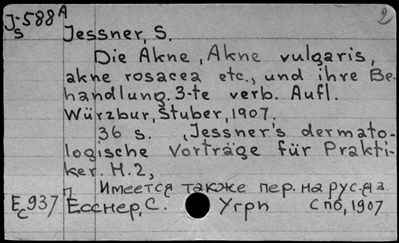 J-588 A
s
2
Jessner, S.
Die Akne, Akne vulgaris,
akne rosacea etc., und ihre Be-
handlung. 3-te verb. Aufl.
Würzbur, Stuber, 1907.
36 s. (Jessner's dermato-
logische Vorträge für Prakti-
ker. H. 2,
п Имеется также пер. на рус.яз.
Ес 937 Есснер, С. Угри Спб, 1907